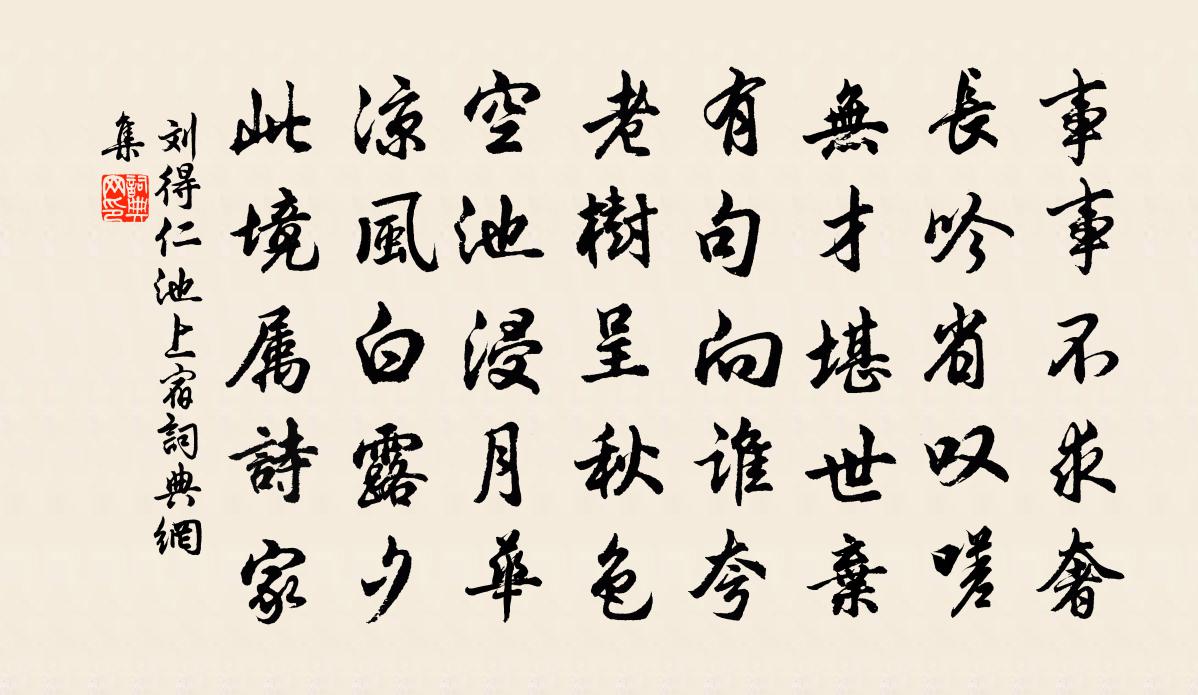 事事不求奢
長吟省叹嗟
無才堪世棄
有句向谁夸
老樹呈秋色
空池浸月華
凉風白露夕
此境属詩家
刘得仁池上宿詞典網
集
詞典網印